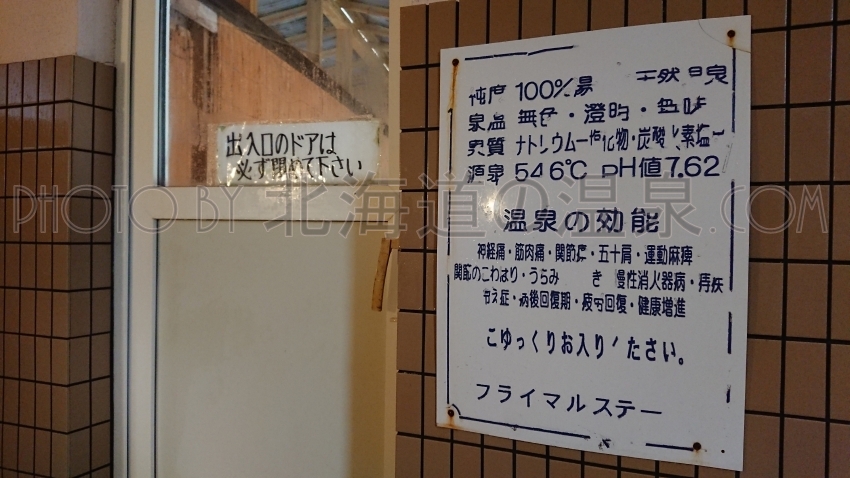 出入口のドアは
必ず閉めて下さい
100%
無色・澄明・
ナトリウム 化物・炭酸 素塩
源泉 54.6℃ pH値7.62
温泉の効能
神経痛・筋肉痛・関節 ・五十肩・運動麻痺
関節のこわばり・うちみ き 慢性消火器病・痔疾
え症・病後回復期・疲労回復・健康増進
ごゆっくりお入り ださい。
プライマルステー
PHOTO BY 北海道の温泉.COM